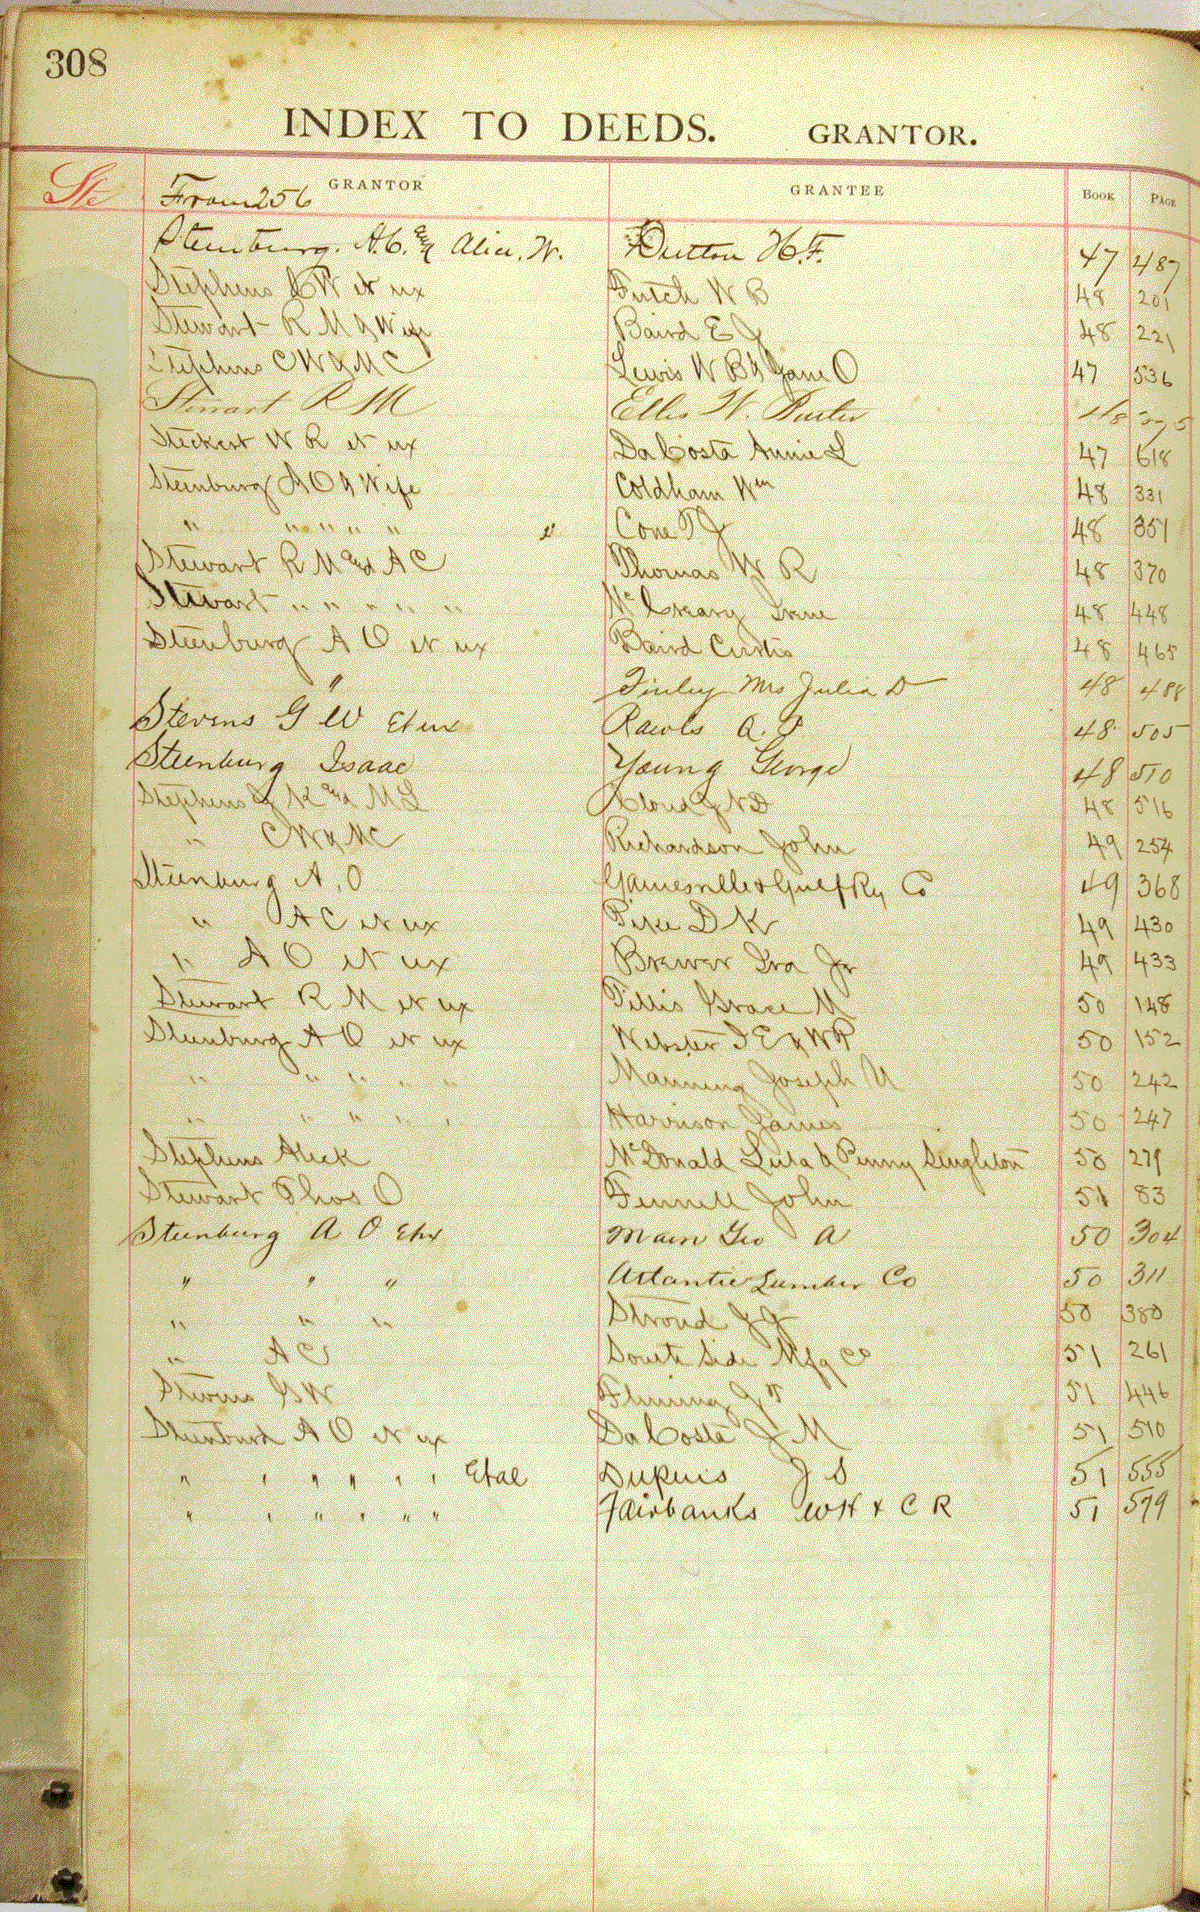 308
INDEX TO DEEDS. GRANTOR.
Ste From 256 GRANTOR GRANTEE BOOK PAGE
Steenburg. A.C. & Alice. W. Dutton H. F. 47 487
Stephens C W et ux Futch W B 48 201
Stewart R M & Wife Baird E J 48 221
Stephens C W & M C Lewis W B & Jane O 47 536
Stewart R M Ellis W. 48 375
Steckert W R et ux Da Costa Annie L 47 618
Steenburg A O & Wife Coldham Wm 48 331
" " " " " Cone T J 48 351
Stewart R M and A C Thomas W R 48 370
Stewart " " " " " McCreary Irene 48 448
Steenburg A O et ux Baird Curtis 48 465
" Finley Mrs Julia D 48 488
Stevens G W et ux Rawls A. P 48 505
Steenburg Isaac Young George 48 510
Stephens J K and M L N D 48 516
" C W & M C Richardson John 49 254
Steenburg A. O Gainesville & Gulf Ry Co 49 368
" A C et ux Pike D K 49 430
" A O et ux Brewer Ira Jr 49 433
Stewart R M et ux Tillis Grace M 50 148
Steenburg A O et ux Webster I E & W R 50 152
" " " " " Manning Joseph U 50 242
" " " " " Harrison James 50 247
Stephens Aleck McDonald Lula & Penny Singleton 50 279
Stewart Thos O Fennell John 51 83
Steenburg A O Etux Main Geo A 50 304
" " " Atlantic Lumber Co 50 311
" " " Stroud J J 50 380
" A C South Side Mfg Co 51 261
Stevens G W Fleming J 51 446
Steenburg A O et ux Da Costa J M 51 510
" " " " " " Etal Dupuis J S 51 555
" " " " " " Fairbanks W H & C R 51 579